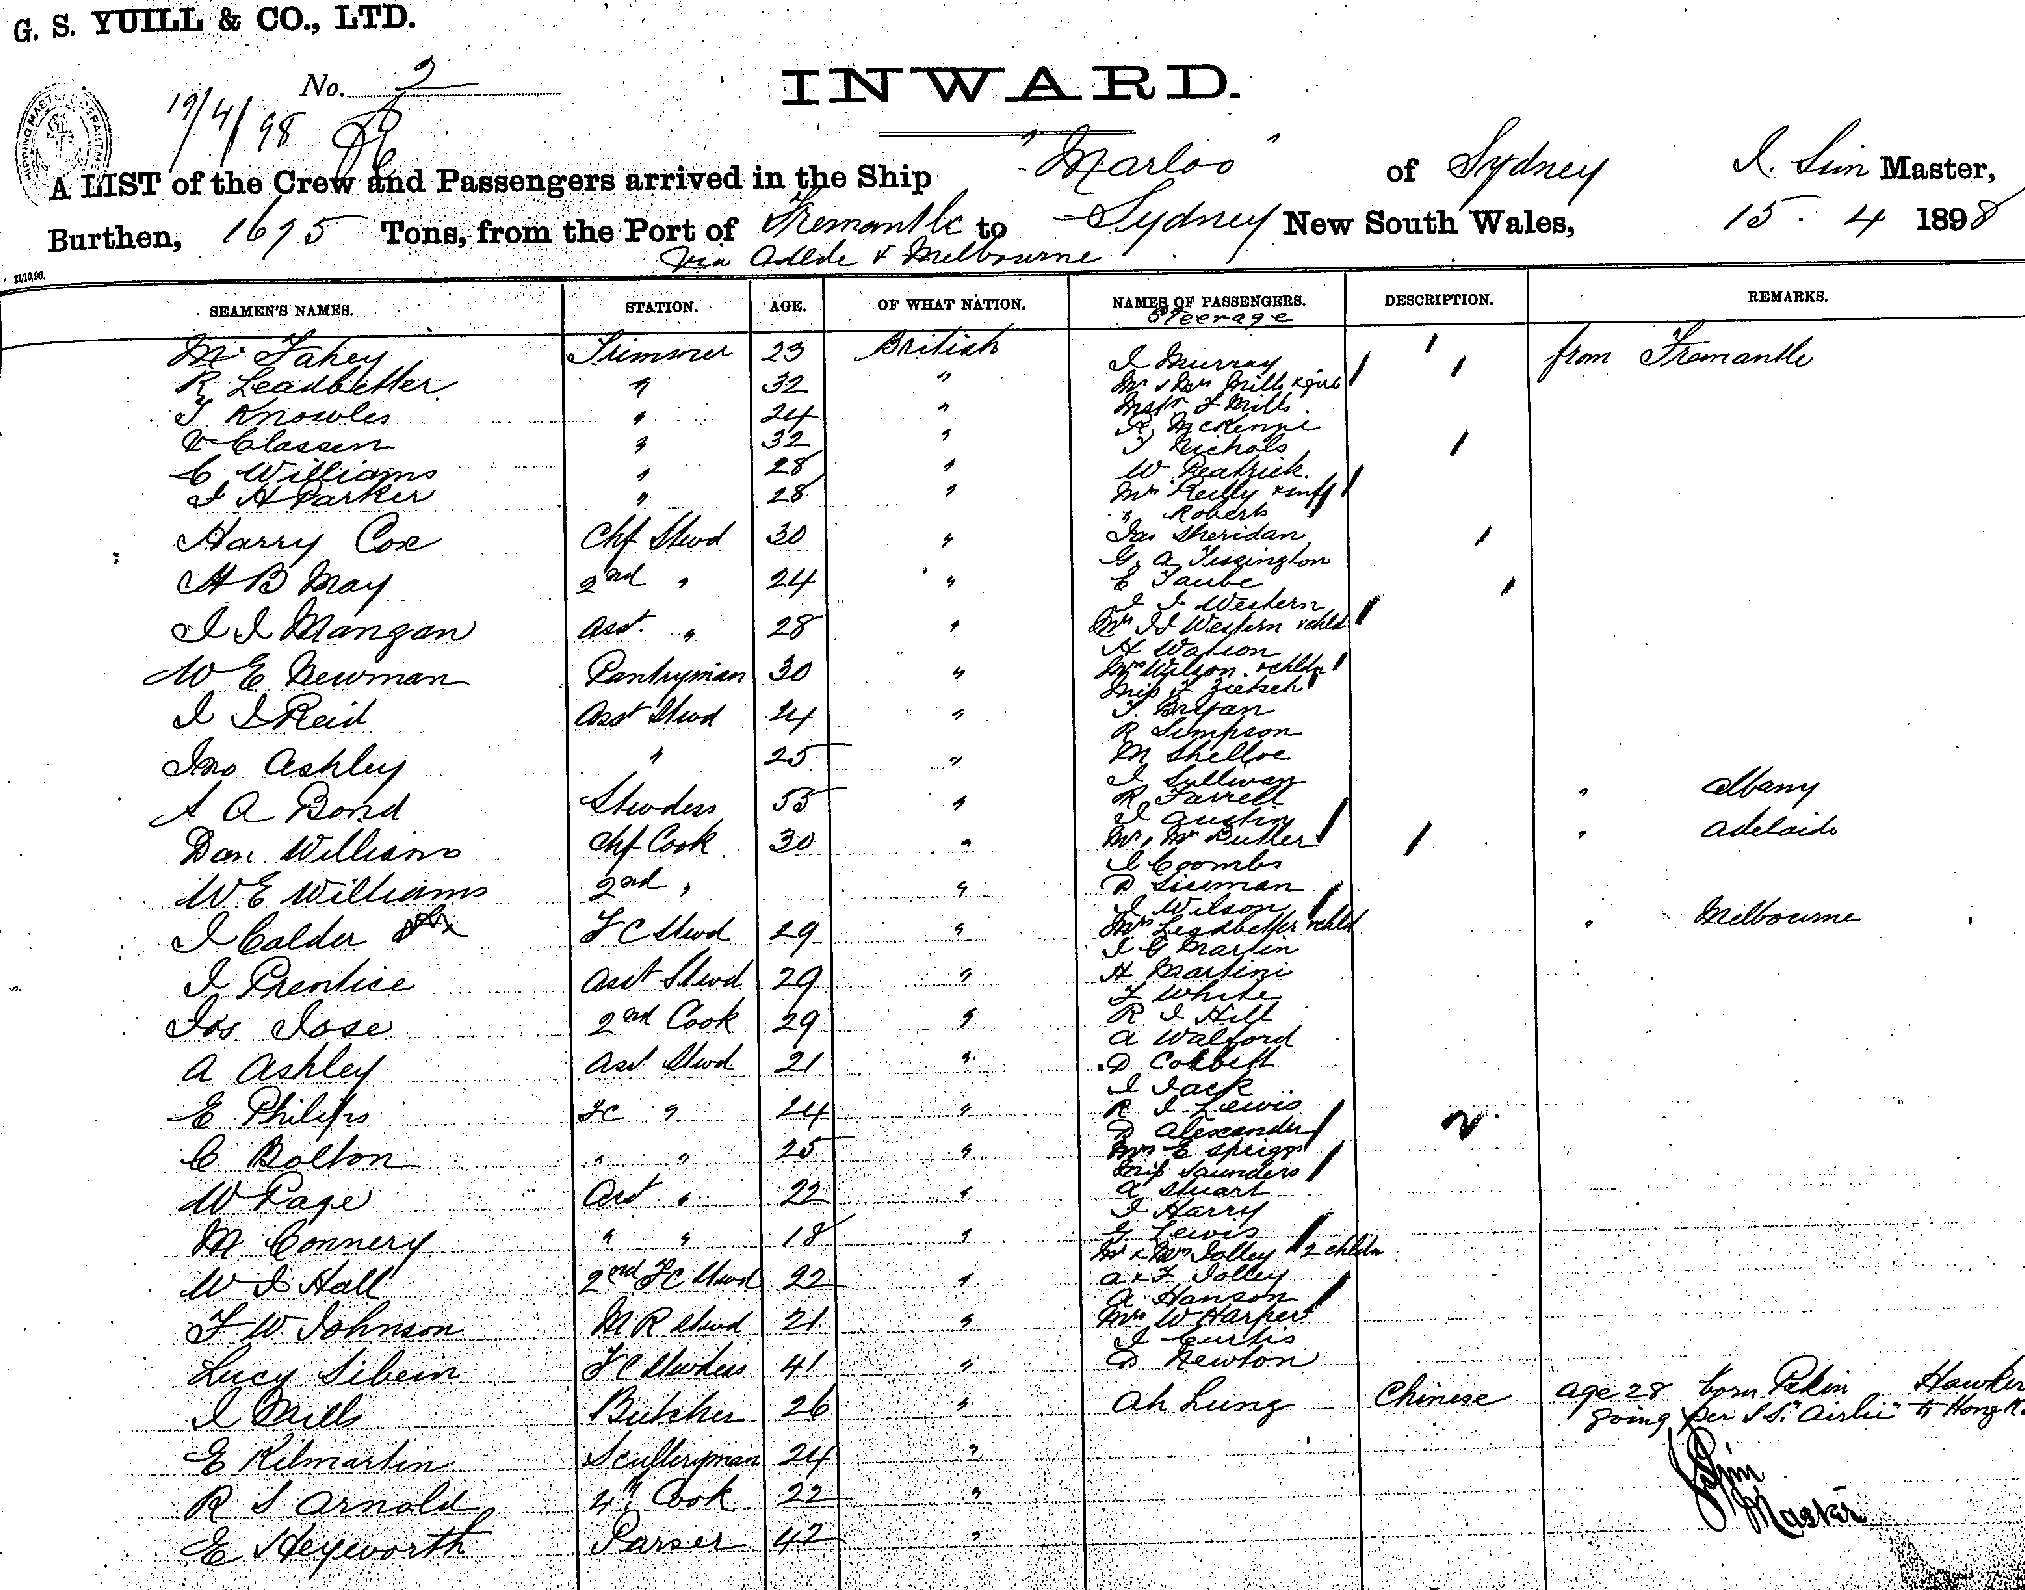 G. S. YUILL & CO., LTD.
No. 2
INWARD.
19/4/98
A LIST of the Crew and Passengers arrived in the Ship "Marloo" of Sydney J. Sim Master,
Burthen, 1675 Tons, from the Port of Fremantle to Sydney New South Wales, 15. 4 1898
via Adlde & Melbourne
SEAMEN'S NAMES. STATION. AGE. OF WHAT NATION. NAMES OF PASSENGERS. DESCRIPTION. REMARKS.
Steerage
M Fahey Trimmer 23 British J Murray from Fremantle
R Leadbetter " 32 " Mr & Mrs Mills
T Knowles " 24 " Mstr F Mills
R McKenzie
V Classen " 32 " T Nichols
C Williams " 28 " W.
J H Parker " 28 " Mrs Reilly & inft
" Roberts
Harry Cox Chf Stwd 30 " Jas Sheridan
G. A Tissington
H B May 2nd " 24 " E Taube
J J Western
J J Mangan asst. " 28 " Mrs J J Western & chld
H Watson
W E Newman Pantryman 30 " Mrs Wilson & chldn
Miss F Zietsch
J J Reid Asst Stwd 24 " T. Bryan
R Simpson
Jno Ashley " 25 " M Shelloe
J Sullivan
A A Bond Stwdess 55 " R Farrell " Albany
J Austin
Dan Williams Chf Cook 30 " Mr & Mrs Butler " Adelaide
J Coombs
W E Williams 2nd " " D Sissman
J Wilson
J Calder F C Stwd 29 " Mrs Leadbetter & chld " Melbourne
J G Martin
J Prentice asst Stwd 29 " H Martini
F White
Jos Jose 2nd Cook 29 " R J Hill
A Walford
A Ashley asst Stwd 21 " D Corbett
J Jack
E Philips FC " 24 " R J Lewis
D Alexander
C Bolton " " 25 " Mrs E Spriggs
Miss Saunders
W Page Asst " 22 " A Stuart
J Harry
M Connery " " 18 " G Lewis
Mr & Mrs Jolley 2 chldn
W J Hall 2nd F C Stwd 22 " A & F Jolley
A. Hanson
F W Johnson M R Stwd 21 " Mrs W Harper
J Curtis
Lucy Sibein F C Stwdess 41 " D Newton
J Mills Butcher 26 " Ah Lung Chinese age 28 born Pekin Hawker
going per S S. "Airlie" to Hong K.
E Kilmartin Sculleryman 24 "
J Sim
R S Arnold 4th Cook 22 "
Master
E Heyworth Purser 42 "